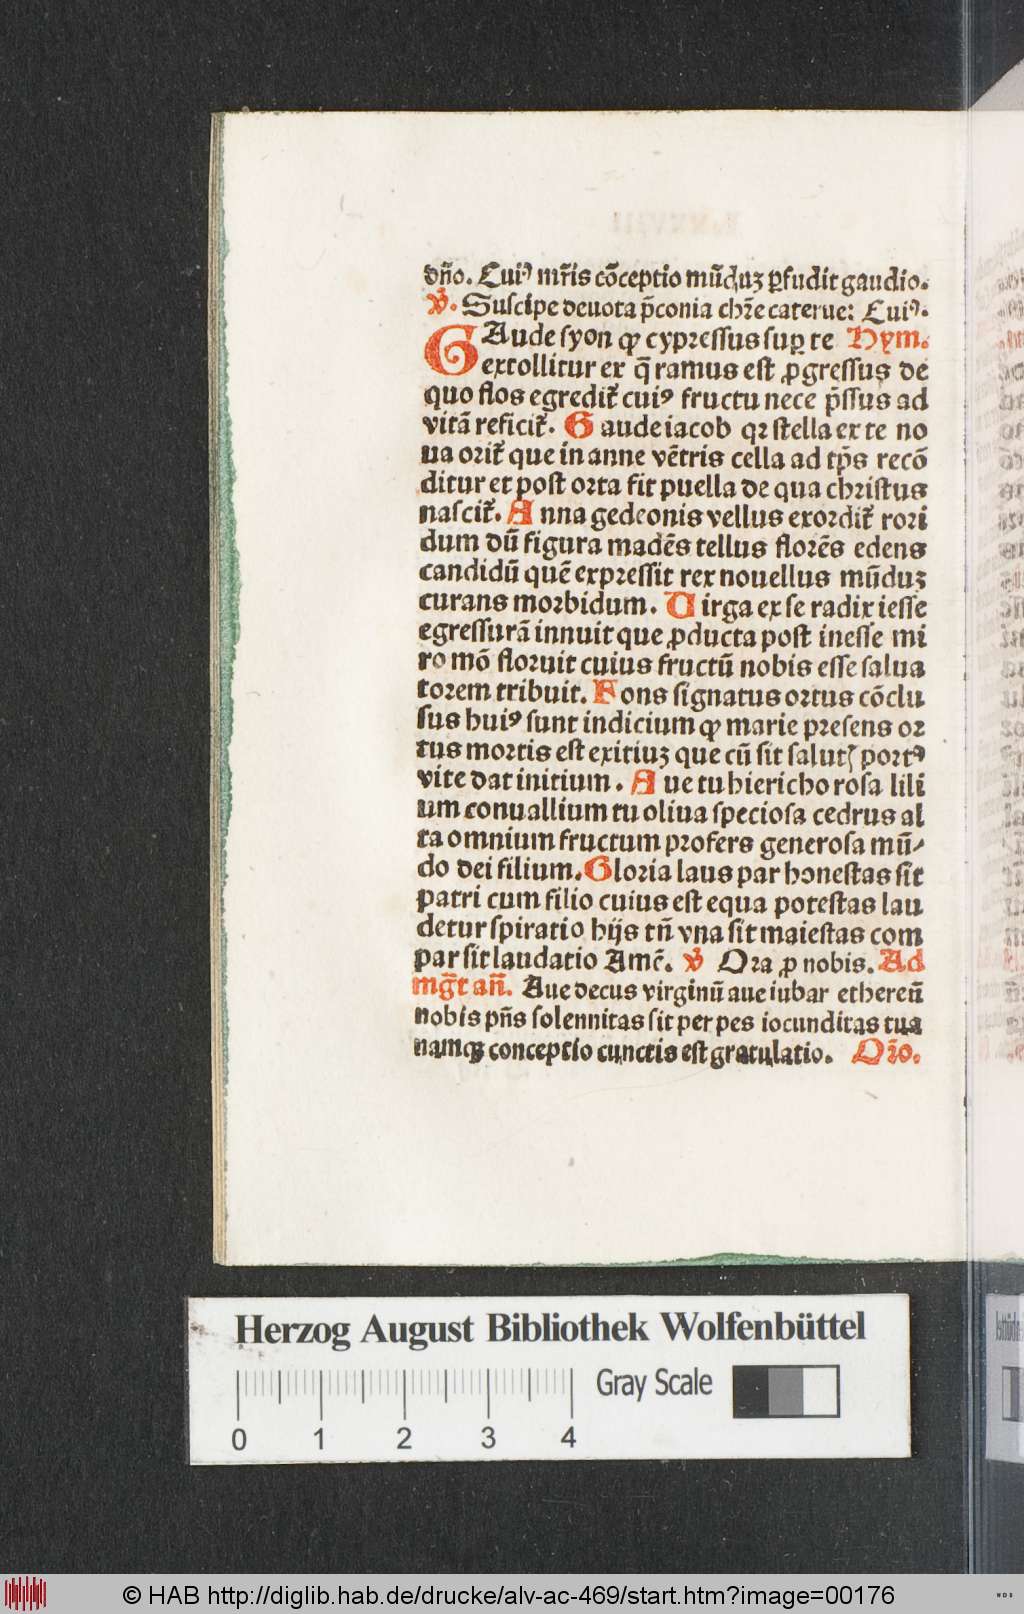 dño. Cuiꝰ mr̃is cōceptio mūduȝ ꝑfudit gaudio.
℣. Suscipe deuota p̃conia chr̃e caterue: Cuiꝰ.
GAude syon ꝙ cypressus suꝑ te Hym.
extollitur ex q̄ ramus est ꝓgressus de
quo flos egredit̃ cuiꝰ fructu nece p̃ssus ad
vitā reficit̃. Gaude iacob qꝛ stella ex te no
ua orit̃ que in anne vētris cella ad tp̄s recō
ditur et post orta fit puella de qua christus
nascit̃. Anna gedeonis vellus exordit̃ rori
dum dū figura madēs tellus florēs edens
candidū quē expressit rex nouellus mūduȝ
curans morbidum. Uirga ex se radix iesse
egressurā innuit que ꝓducta post inesse mi
ro mō floruit cuius fructū nobis esse salua
torem tribuit. Fons signatus ortus cōclu
sus huiꝰ sunt indicium ꝙ marie presens or
tus mortis est exitiuȝ que cū sit salutꝭ portꝰ
vite dat initium. Aue tu hiericho rosa lili
um conuallium tu oliua speciosa cedrus al
ta omnium fructum profers generosa mū⸗
do dei filium. Gloria laus par honestas sit
patri cum filio cuius est equa potestas lau
detur spiratio hijs tñ vna sit maiestas com
par sit laudatio Amē. ℣ Ora ꝓ nobis. Ad
mg̃t añ. Aue decus virginū aue iubar ethereū
nobis pñs solennitas sit perpes iocunditas tua
namqȝ conceptio cunctis est gratulatio. Or̃o.
Herzog August Bibliothek Wolfenbüttel
Gray Scale
0 1 2 3 4
© HAB http://diglib.hab.de/drucke/alv-ac-469/start.htm?image=00176